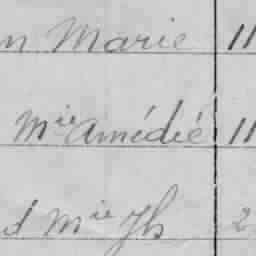 n Marie 11
Mie Amédié 11
l Mie Jh 2